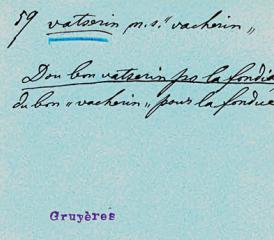 59 vatserin n.s. "vacherin"
Dou bon vatserin po la fondia
du bon "vacherin" pour la fondue
Gruyères